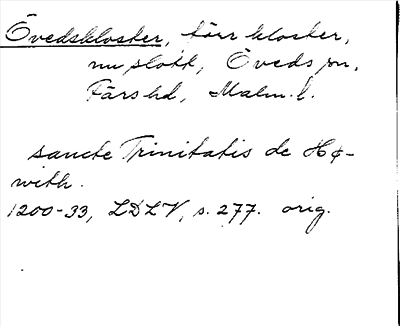 Övedskloster, förr kloster,
nu slott, Öveds sn,
Färs hd, Malm. l.
sancte Trinitatis de Hø-
with.
1200-33, LDLV, s. 277. orig.